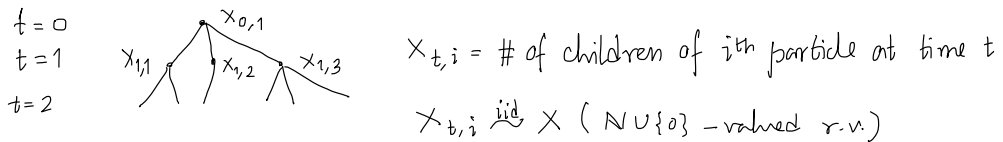 t = 0
X₀,₁
t = 1
X₁,₁
X₁,₂
X₁,₃
t = 2
X_{t,i} = # of children of iᵗʰ particle at time t
X_{t,i} iid ~ X ( ℕ ∪ {0} – valued r.v. )